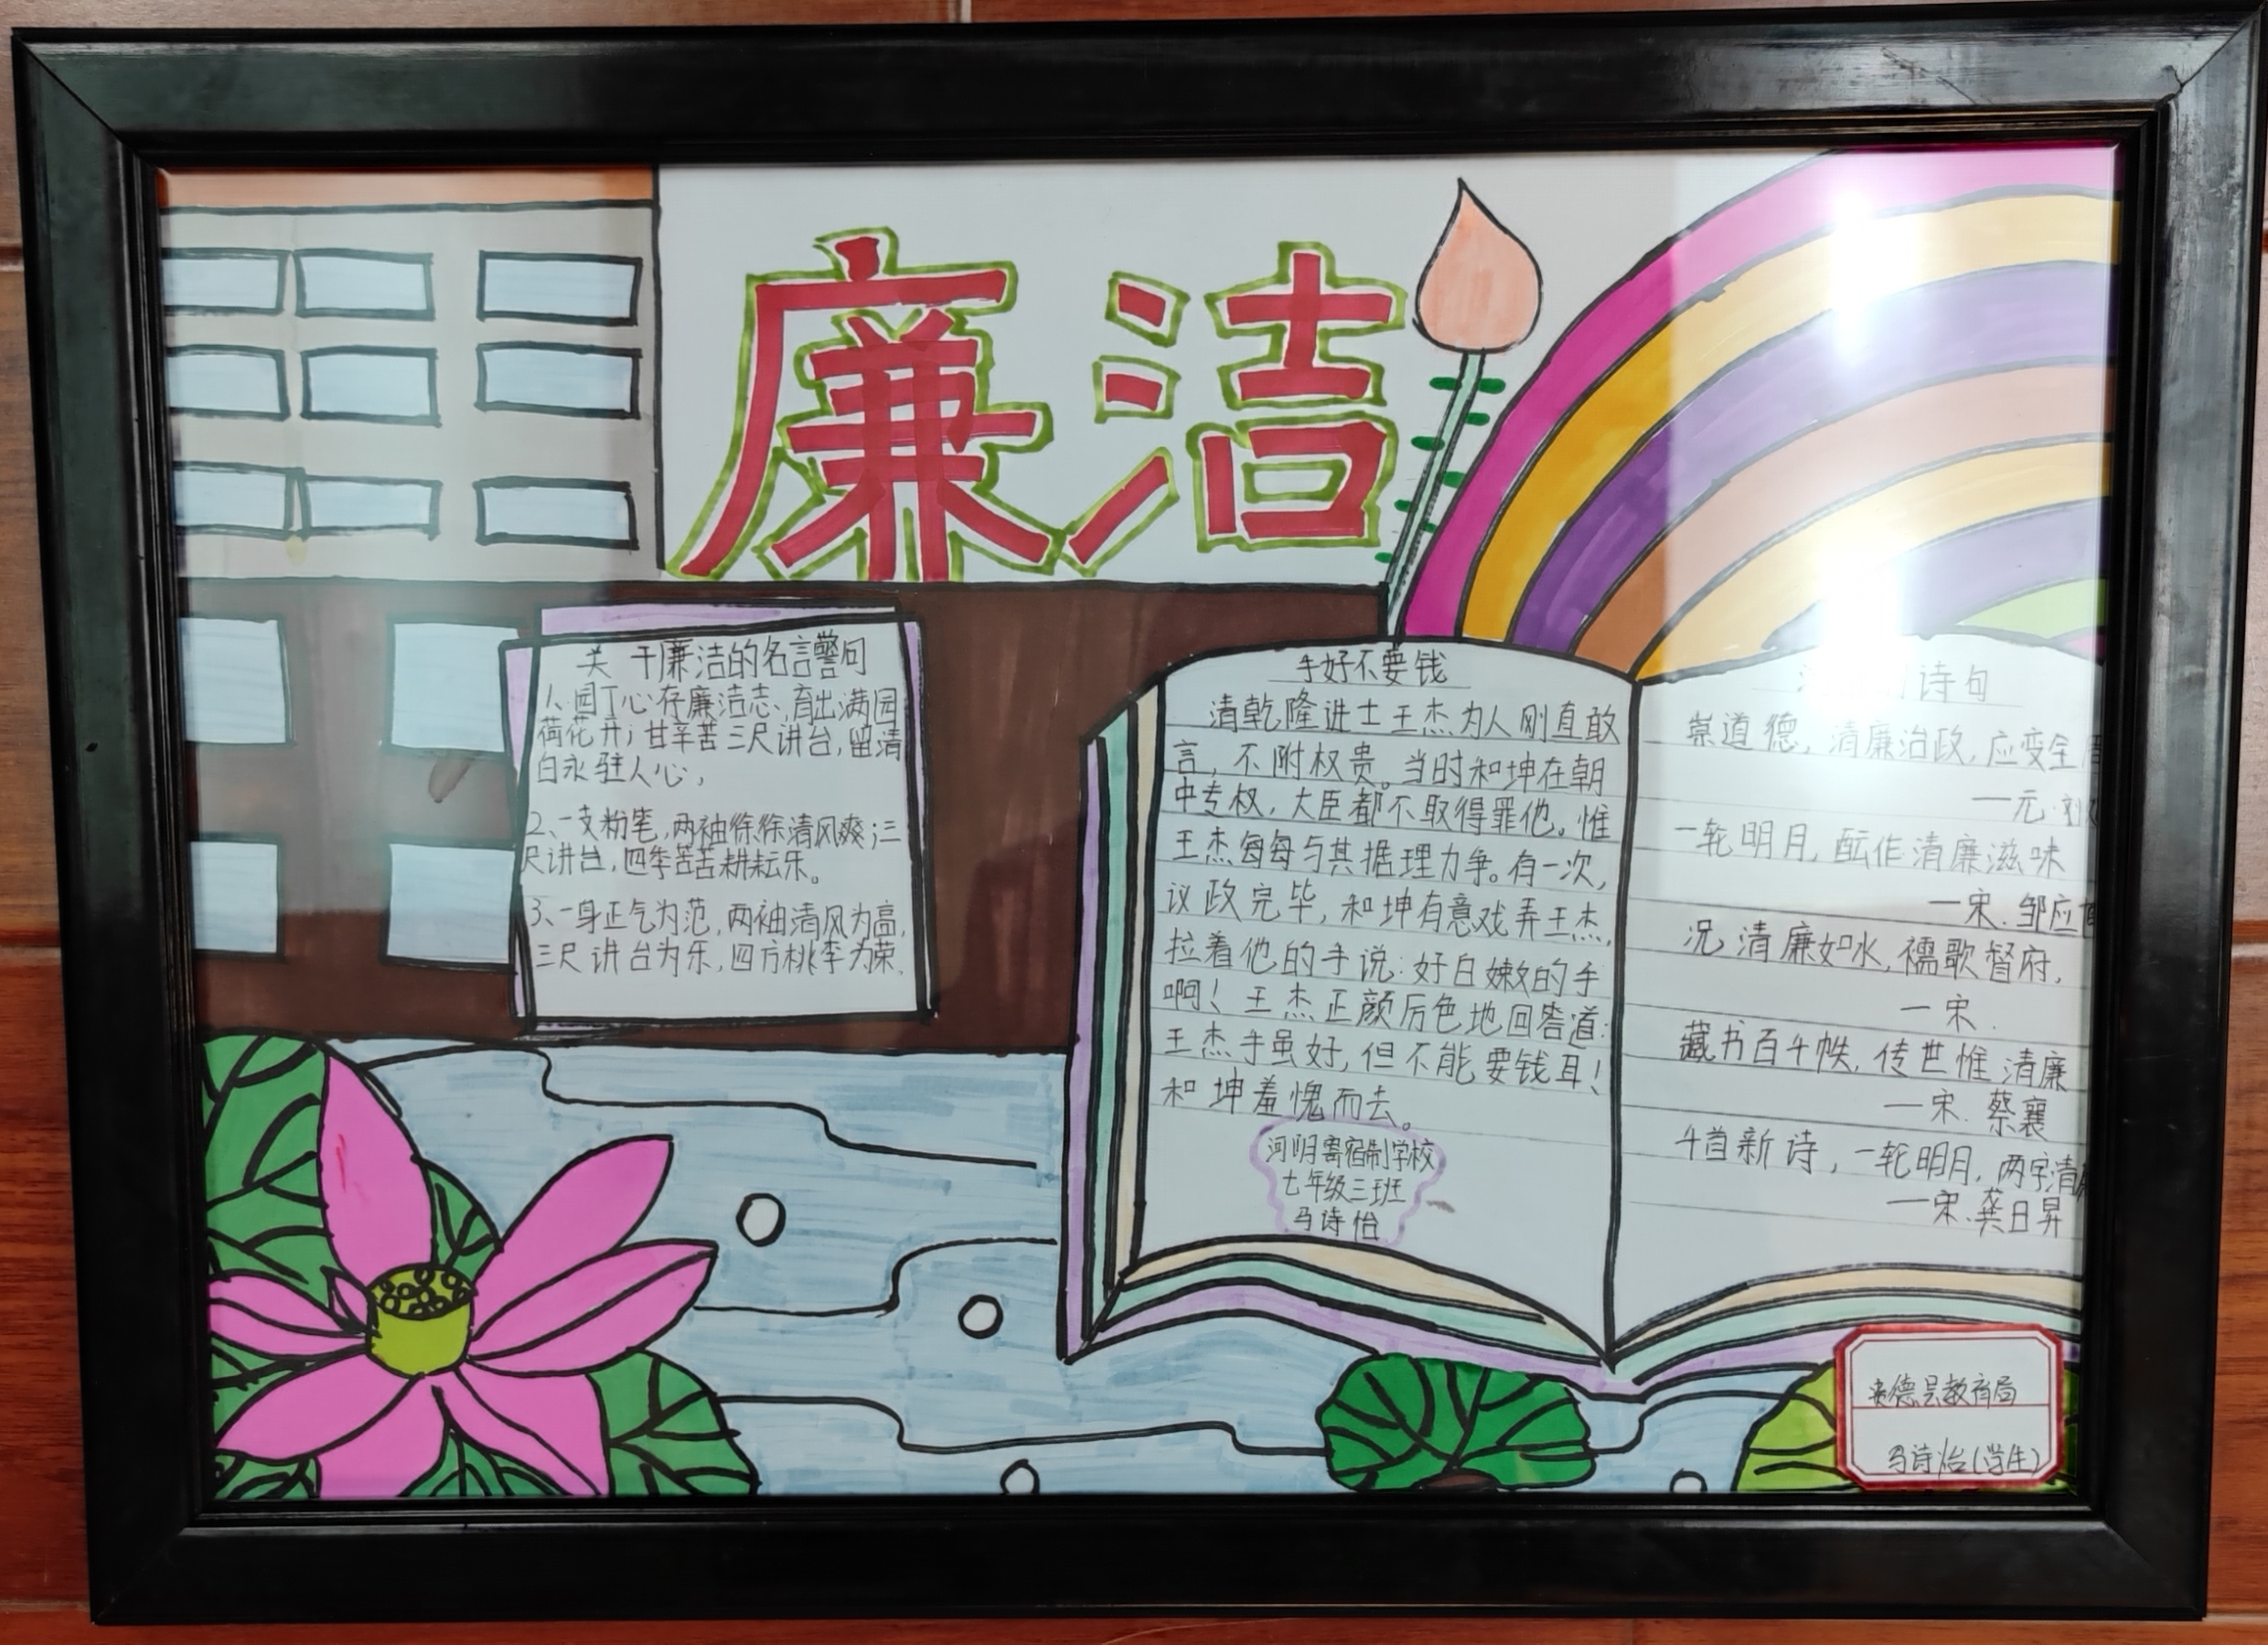 廉洁
关于廉洁的名言警句
1、园丁心存廉洁志、育出满园
荷花开；甘辛苦三尺讲台，留清
白永驻人心，
2、一支粉笔，两袖徐徐清风爽；三
尺讲台，四季苦苦耕耘乐。
3、一身正气为范，两袖清风为高，
三尺讲台为乐，四方桃李为荣.
手好不要钱
清乾隆进士王杰为人刚直敢
言，不附权贵。当时和坤在朝
中专权，大臣都不取得罪他。惟
王杰每每与其据理力争。有一次，
议政完毕，和坤有意戏弄王杰，
拉着他的手说：好白嫩的手
啊！王杰正颜厉色地回答道：
王杰手虽好，但不能要钱耳！
和坤羞愧而去。
河阴寄宿制学校
七年级三班
马诗怡
诗句
崇道德，清廉治政，应变全
—元.刘
一轮明月，酝作清廉滋味
—宋.邹应
况清廉如水，襦歌督府，
—宋.
藏书百千帙，传世惟清廉
—宋.蔡襄
千首新诗，一轮明月，两字清
—宋.龚日昇
贵德县教育局
马诗怡(学生)